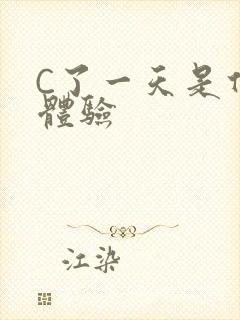 C了一天是
體驗
江染